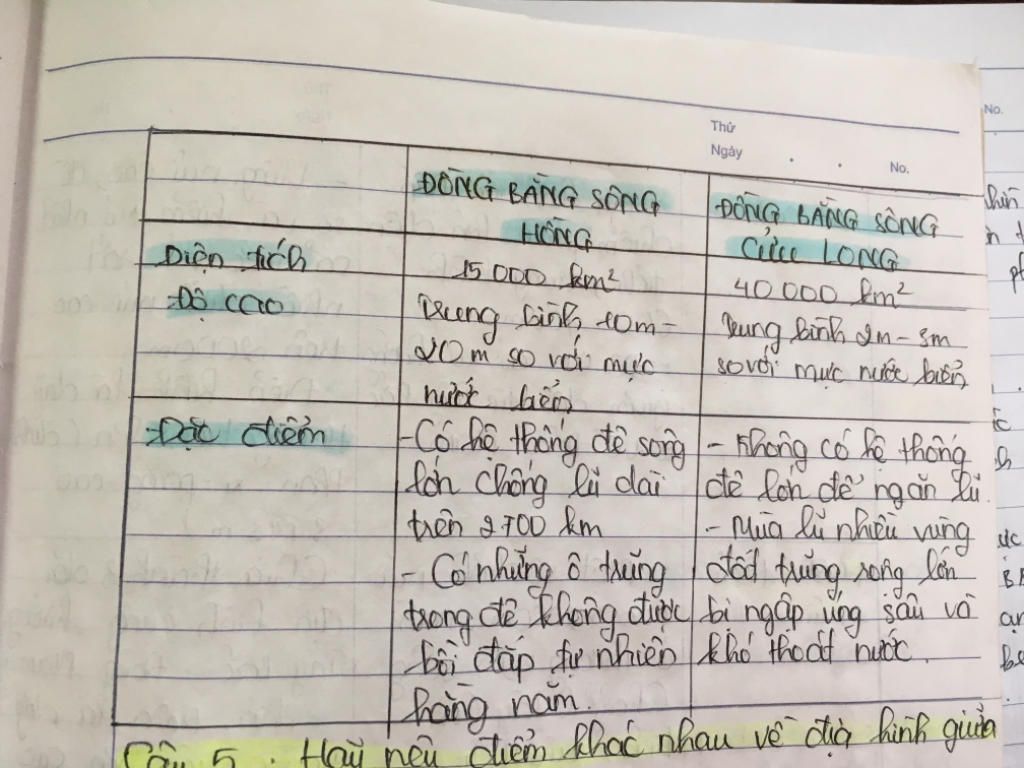 Thứ
Ngày . . No.
No.
ĐỒNG BẰNG SÔNG
HỒNG
ĐỒNG BẰNG SÔNG
CỬU LONG
Diện tích
15000 km²
40 000 km²
Độ cao
Trung bình 10m -
20m so với mực
nước biển
Trung bình 2m - 3m
so với mực nước biển
Đặc điểm
- Có hệ thống đê sông
lớn chống lũ dài
trên 2700 km
- Có những ô trũng
trong đê không được
bồi đắp tự nhiên
hằng năm.
- Không có hệ thống
đê lớn để ngăn lũ.
- Mùa lũ nhiều vùng
đất trũng rộng lớn
bị ngập úng sâu và
khó thoát nước.
Câu 5. Hãy nêu điểm khác nhau về địa hình giữa